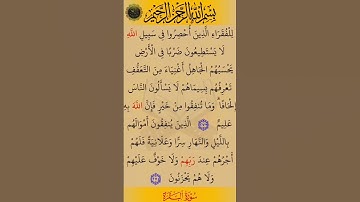 بسم الله الرحمن الرحيم
لِلْفُقَرَاءِ الَّذِينَ أُحْصِرُوا فِي سَبِيلِ اللَّهِ
لَا يَسْتَطِيعُونَ ضَرْبًا فِي الْأَرْضِ
يَحْسَبُهُمُ الْجَاهِلُ أَغْنِيَاءَ مِنَ التَّعَفُّفِ
تَعْرِفُهُم بِسِيمَاهُمْ لَا يَسْأَلُونَ النَّاسَ
إِلْحَافًا وَمَا تُنفِقُوا مِنْ خَيْرٍ فَإِنَّ اللَّهَ بِهِ
عَلِيمٌ الَّذِينَ يُنفِقُونَ أَمْوَالَهُم
بِاللَّيْلِ وَالنَّهَارِ سِرًّا وَعَلَانِيَةً فَلَهُمْ
أَجْرُهُمْ عِندَ رَبِّهِمْ وَلَا خَوْفٌ عَلَيْهِمْ
وَلَا هُمْ يَحْزَنُونَ
سُورَةُ الْبَقَرَةِ